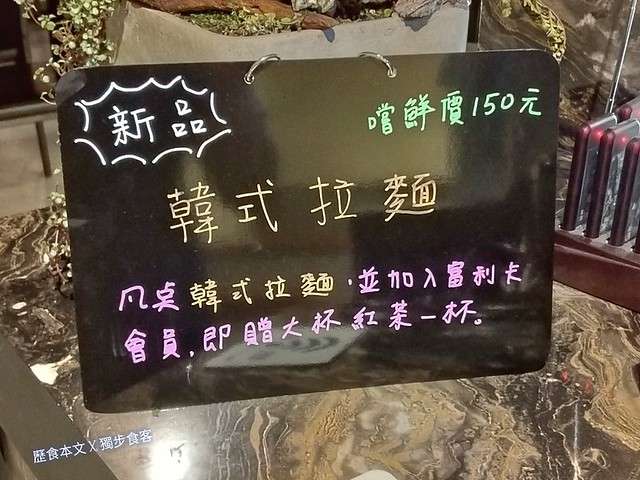 新品
嚐鮮價150元
韓式拉麵
凡点韓式拉麵,並加入富利卡
會員,即贈大杯紅茶一杯。
歷食本文X獨步食客